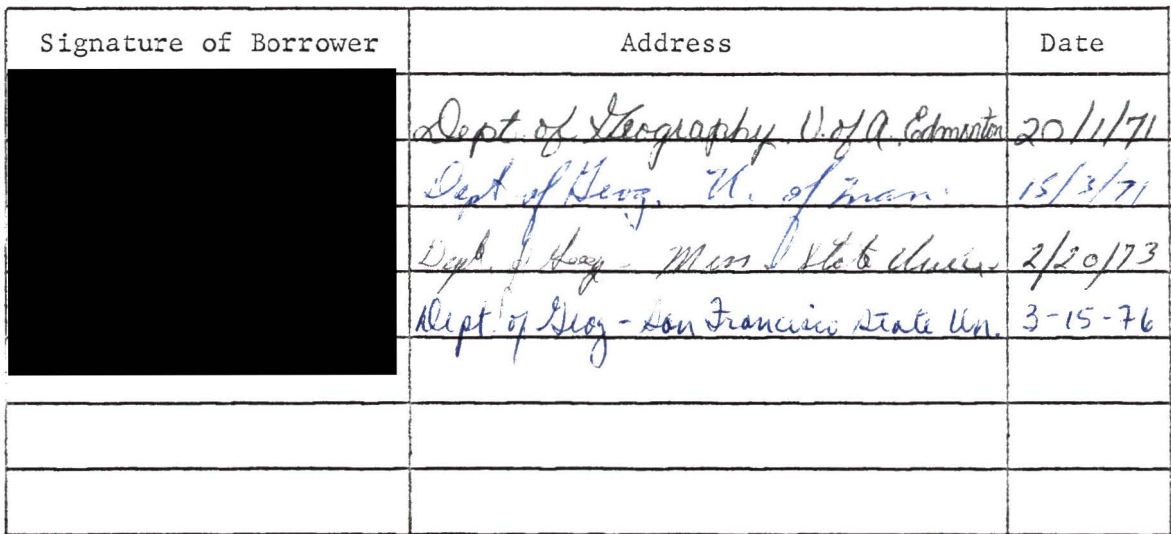 Signature of Borrower Address Date
Dept. of Geography U. of A. Edmonton 20/1/71
Dept of Geog. U. of Man. 15/3/71
Dept. of Geog - Miss State 2/20/73
Dept. of Geog - San Francisco State Un. 3-15-76